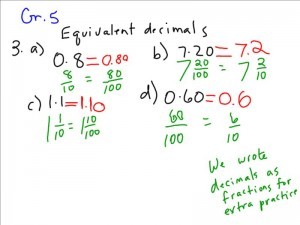 Gr. 5
Equivalent decimals
3. a) 0.8 = 0.80
8/10 = 80/100
b) 7.20 = 7.2
7 20/100 = 7 2/10
c) 1.1 = 1.10
1 1/10 = 1 10/100
d) 0.60 = 0.6
60/100 = 6/10
We wrote
decimals as
fractions for
extra practice